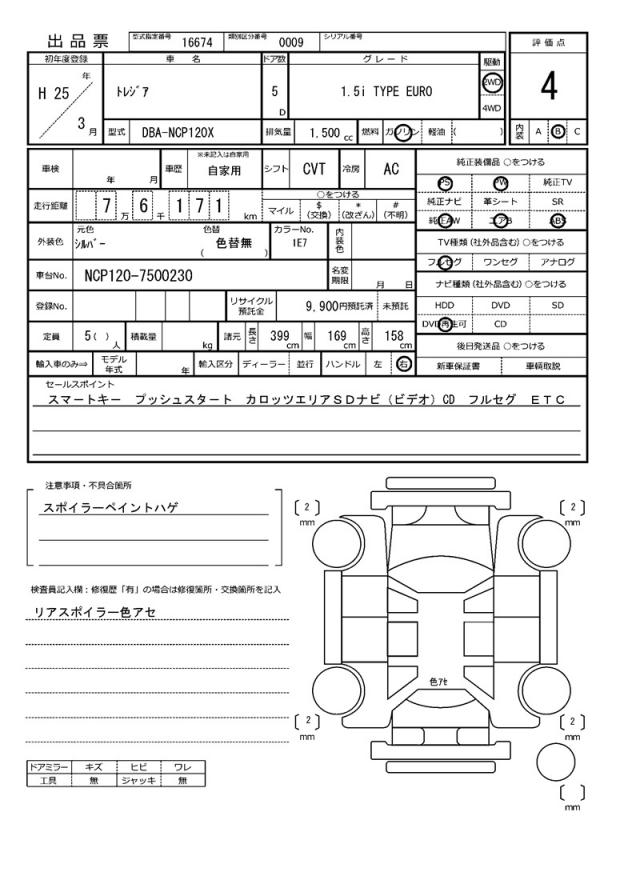 出品票 型式指定番号 16674 類別区分番号 0009 シリアル番号
評価点
4
内装 A B C
初年度登録 車名 ドア数 グレード 駆動
H 25 年 3 月
トレジア 5 D 1.5i TYPE EURO 2WD
4WD
型式 DBA-NCP120X 排気量 1.500 cc 燃料 ガソリン 軽油 ( )
車検 年 月 車歴 ※未記入は自家用 自家用 シフト CVT 冷房 AC
走行距離 7 万 6 千 1 7 1 km
○をつける
マイル $ (交換) * (改ざん) # (不明)
外装色 元色 シルバー 色替 ( 色替無 ) カラーNo. 1E7 内装色
車台No. NCP120-7500230 名変期限 月 日
登録No. リサイクル預託金 9,900円預託済 未預託
定員 5( ) 人 積載量 kg 諸元 長さ 399 cm 幅 169 cm 高さ 158 cm
輸入車のみ⇒ モデル年式 年 輸入区分 ディーラー 並行 ハンドル 左 右
純正装備品 ○をつける
PS PW 純正TV
純正ナビ 革シート SR
純正AW エアB ABS
TV種類 (社外品含む) ○をつける
フルセグ ワンセグ アナログ
ナビ種類 (社外品含む) ○をつける
HDD DVD SD
DVD再生可 CD
後日発送品 ○をつける
新車保証書 車輌取説
セールスポイント
スマートキー プッシュスタート カロッツエリアSDナビ(ビデオ)CD フルセグ ETC
注意事項・不具合箇所
スポイラーペイントハゲ
検査員記入欄：修復歴「有」の場合は修復箇所・交換箇所を記入
リアスポイラー色アセ
ドアミラー キズ ヒビ ワレ
工具 無 ジャッキ 無
[ 2 ] mm
[ 2 ] mm
色アセ
[ 2 ] mm
[ 2 ] mm
[ ] mm